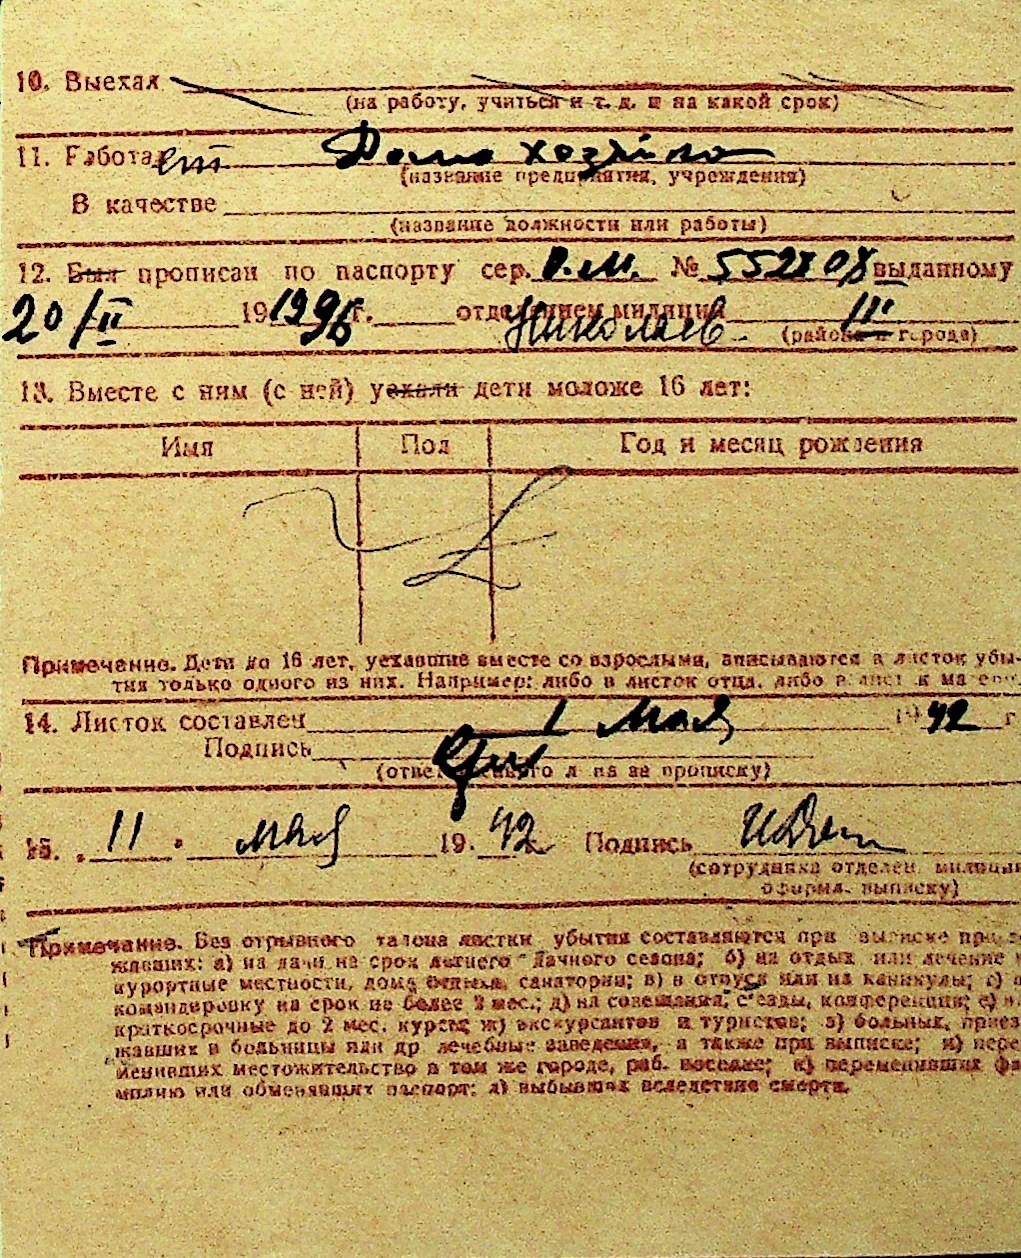 10. Выехал
(на работу, учиться и т. д. и на какой срок)
11. Работает Домо хозяйка
(название предприятия, учреждения)
В качестве
(название должности или работы)
12. Был прописан по паспорту сер. № выданному
20/II 19 г. отделением милиции Николаев III
(района и города)
13. Вместе с ним (с ней) уехали дети моложе 16 лет:
Имя Пол Год и месяц рождения
Примечание. Дети до 16 лет, уехавшие вместе со взрослыми, вписываются в листок убы-
тия только одного из них. Например: либо в листок отца, либо в лист к ма
14. Листок составлен 1 Мая 1942 г
Подпись
(ответ на за прописку)
15. „ 11 " мая 1942 г. Подпись
(сотрудника отделен. милиции
оформл. выписку)
Примечание. Без отрывного талона листки убытия составляются при выписке
жавших: а) на дачи на срок летнего дачного сезона; б) на отдых или лечение
курортные местности, дома отдыха, санатории; в) в отпуск или на каникулы; г)
командировку на срок не более 2 мес.; д) на совещания, с'езды, конференции; е)
краткосрочные до 2 мес. курсы; ж) экскурсантов и туристов; з) больных, приез-
жавших в больницы или др лечебные заведения, а также при выписке; и) пере-
менивших местожительство в том же городе, раб. поселке; к) переменивших фа-
милию или обменявших паспорт; л) выбывших вследствие смерти.